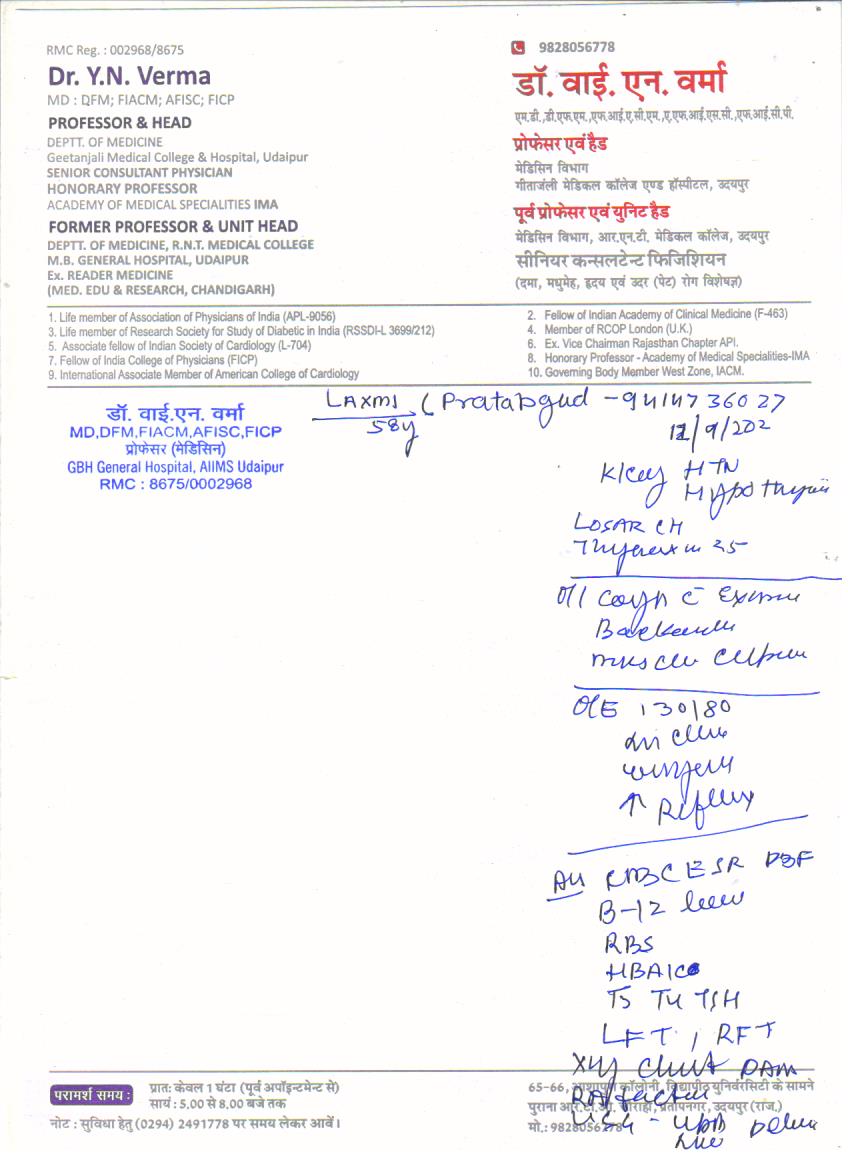 RMC Reg. : 002968/8675
Dr. Y.N. Verma
MD : DFM; FIACM; AFISC; FICP
PROFESSOR & HEAD
DEPTT. OF MEDICINE
Geetanjali Medical College & Hospital, Udaipur
SENIOR CONSULTANT PHYSICIAN
HONORARY PROFESSOR
ACADEMY OF MEDICAL SPECIALITIES IMA
FORMER PROFESSOR & UNIT HEAD
DEPTT. OF MEDICINE, R.N.T. MEDICAL COLLEGE
M.B. GENERAL HOSPITAL, UDAIPUR
Ex. READER MEDICINE
(MED. EDU & RESEARCH, CHANDIGARH)
9828056778
डॉ. वाई. एन. वर्मा
एम.डी.,डी.एफ.एम.,एफ.आई.ए.सी.एम.,ए.एफ.आई.एस.सी.,एफ.आई.सी.पी.
प्रोफेसर एवं हैड
मेडिसिन विभाग
गीताजंली मेडिकल कॉलेज एण्ड हॉस्पीटल, उदयपुर
पूर्व प्रोफेसर एवं युनिट हैड
मेडिसिन विभाग, आर.एन.टी. मेडिकल कॉलेज, उदयपुर
सीनियर कन्सलटेन्ट फिजिशियन
(दमा, मधुमेह, हृदय एवं उदर (पेट) रोग विशेषज्ञ)
1. Life member of Association of Physicians of India (APL-9056)
2. Fellow of Indian Academy of Clinical Medicine (F-463)
3. Life member of Research Society for Study of Diabetic in India (RSSDI-L 3699/212)
4. Member of RCOP London (U.K.)
5. Associate fellow of Indian Society of Cardiology (L-704)
6. Ex. Vice Chairman Rajasthan Chapter API.
7. Fellow of India College of Physicians (FICP)
8. Honorary Professor - Academy of Medical Specialities-IMA
9. International Associate Member of American College of Cardiology
10. Governing Body Member West Zone, IACM.
डॉ. वाई.एन. वर्मा
MD,DFM,FIACM,AFISC,FICP
प्रोफेसर (मेडिसिन)
GBH General Hospital, AIIMS Udaipur
RMC : 8675/0002968
LAXMI (Pratabgud - 9414736027
58y
12/9/202
HTN
LOSAR CH
25
O/E 130/80
↑ Reflux
ESR
B-12
RBS
HBA1C
T3 T4 TSH
LFT, RFT
परामर्श समय :
प्रात: केवल 1 घंटा (पूर्व अपॉइन्टमेन्ट से)
सायं : 5.00 से 8.00 बजे तक
नोट : सुविधा हेतु (0294) 2491778 पर समय लेकर आवें।
65-66, कॉलोनी, विद्यापीठ युनिर्वरसिटी के सामने
पुराना उदयपुर (राज.)
मो.: 9828056778